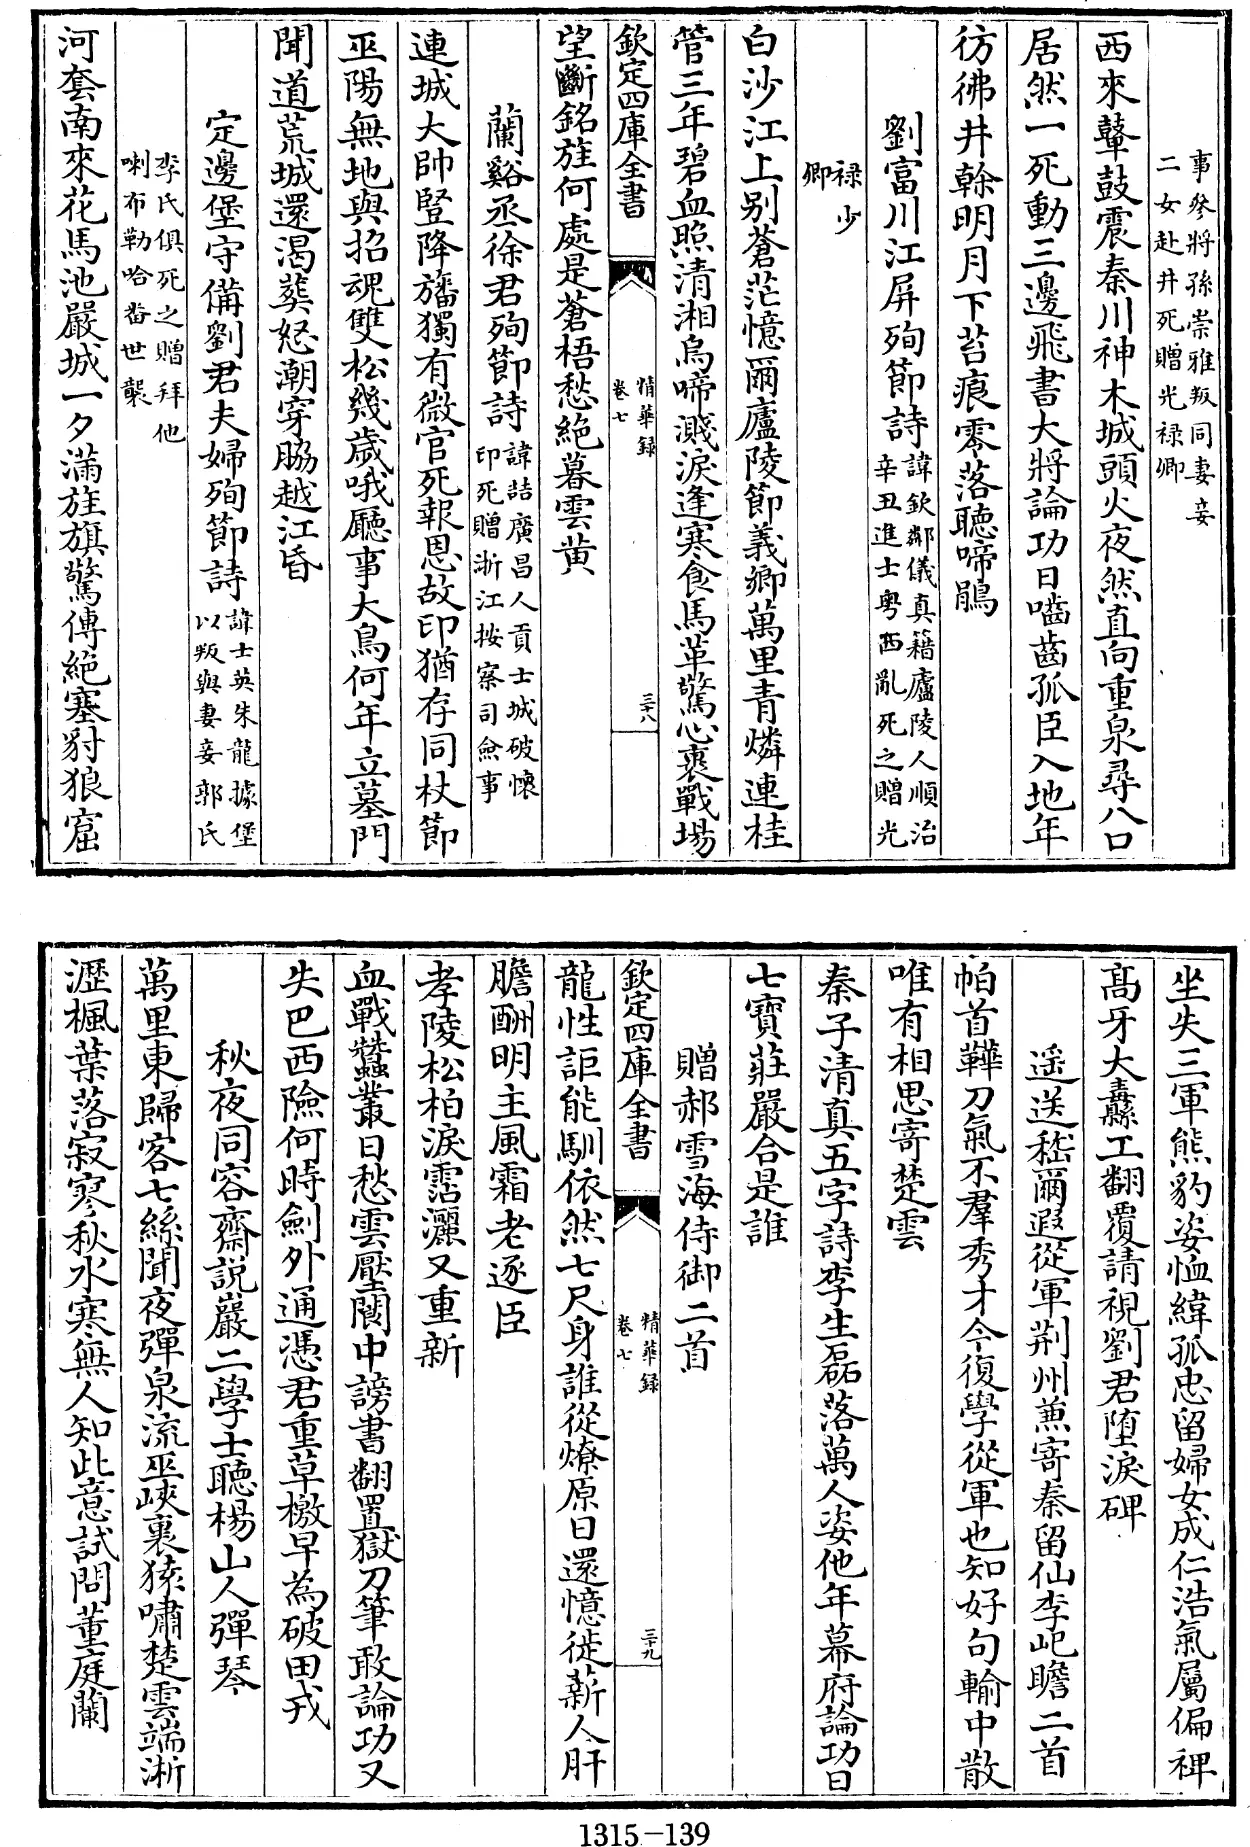 事參將孫崇雅叛同妻妾
二女赴井死贈光禄卿
西來鼙鼓震秦川神木城頭火夜然直向重泉尋八口
居然一死動三邊飛書大將論功日嚙齒孤臣入地年
彷彿井幹明月下苔痕零落聽啼鵑
劉富川江屏殉節詩諱欽鄰儀真籍廬陵人順治
辛丑進士粤西亂死之贈光
禄少
卿
白沙江上别蒼茫憶爾廬陵節義鄉萬里青燐連桂
管三年碧血照清湘烏啼濺淚逢寒食馬革驚心裹戰場
欽定四庫全書
精華録
卷七
三十八
望斷銘旌何處是蒼梧愁絶暮雲黄
蘭谿丞徐君殉節詩諱喆廣昌人貢士城破懷
印死贈浙江按察司僉事
連城大帥豎降旛獨有微官死報恩故印猶存同杖節
巫陽無地與招魂雙松幾歲哦廳事大鳥何年立墓門
聞道荒城還渴葬怒潮穿脇越江昏
定邊堡守備劉君夫婦殉節詩諱士英朱龍據堡
以叛與妻妾郭氏
李氏俱死之贈拜他
喇布勒哈畨世襲
河套南來花馬池嚴城一夕滿旌旗驚傳絶塞豺狼窟
坐失三軍熊豹姿恤緯孤忠留婦女成仁浩氣屬偏裨
髙牙大纛工翻覆請視劉君墮淚碑
遥送嵇爾遐從軍荆州兼寄秦留仙李屺瞻二首
帕首鞾刀氣不羣秀才今復學從軍也知好句輸中散
唯有相思寄楚雲
秦子清真五字詩李生磊落萬人姿他年幕府論功日
七寶莊嚴合是誰
贈郝雪海侍御二首
欽定四庫全書
精華録
卷七
三十九
龍性詎能馴依然七尺身誰從燎原日還憶徙薪人肝
膽酬明主風霜老逐臣
孝陵松柏淚霑灑又重新
血戰蠶叢日愁雲壓閬中謗書翻置獄刀筆敢論功又
失巴西險何時劍外通憑君重草檄早為破田戎
秋夜同容齋説巖二學士聽楊山人彈琴
萬里東歸客七絲聞夜彈泉流巫峽裏猿嘯楚雲端淅
瀝楓葉落寂寥秋水寒無人知此意試問董庭蘭
1315-139